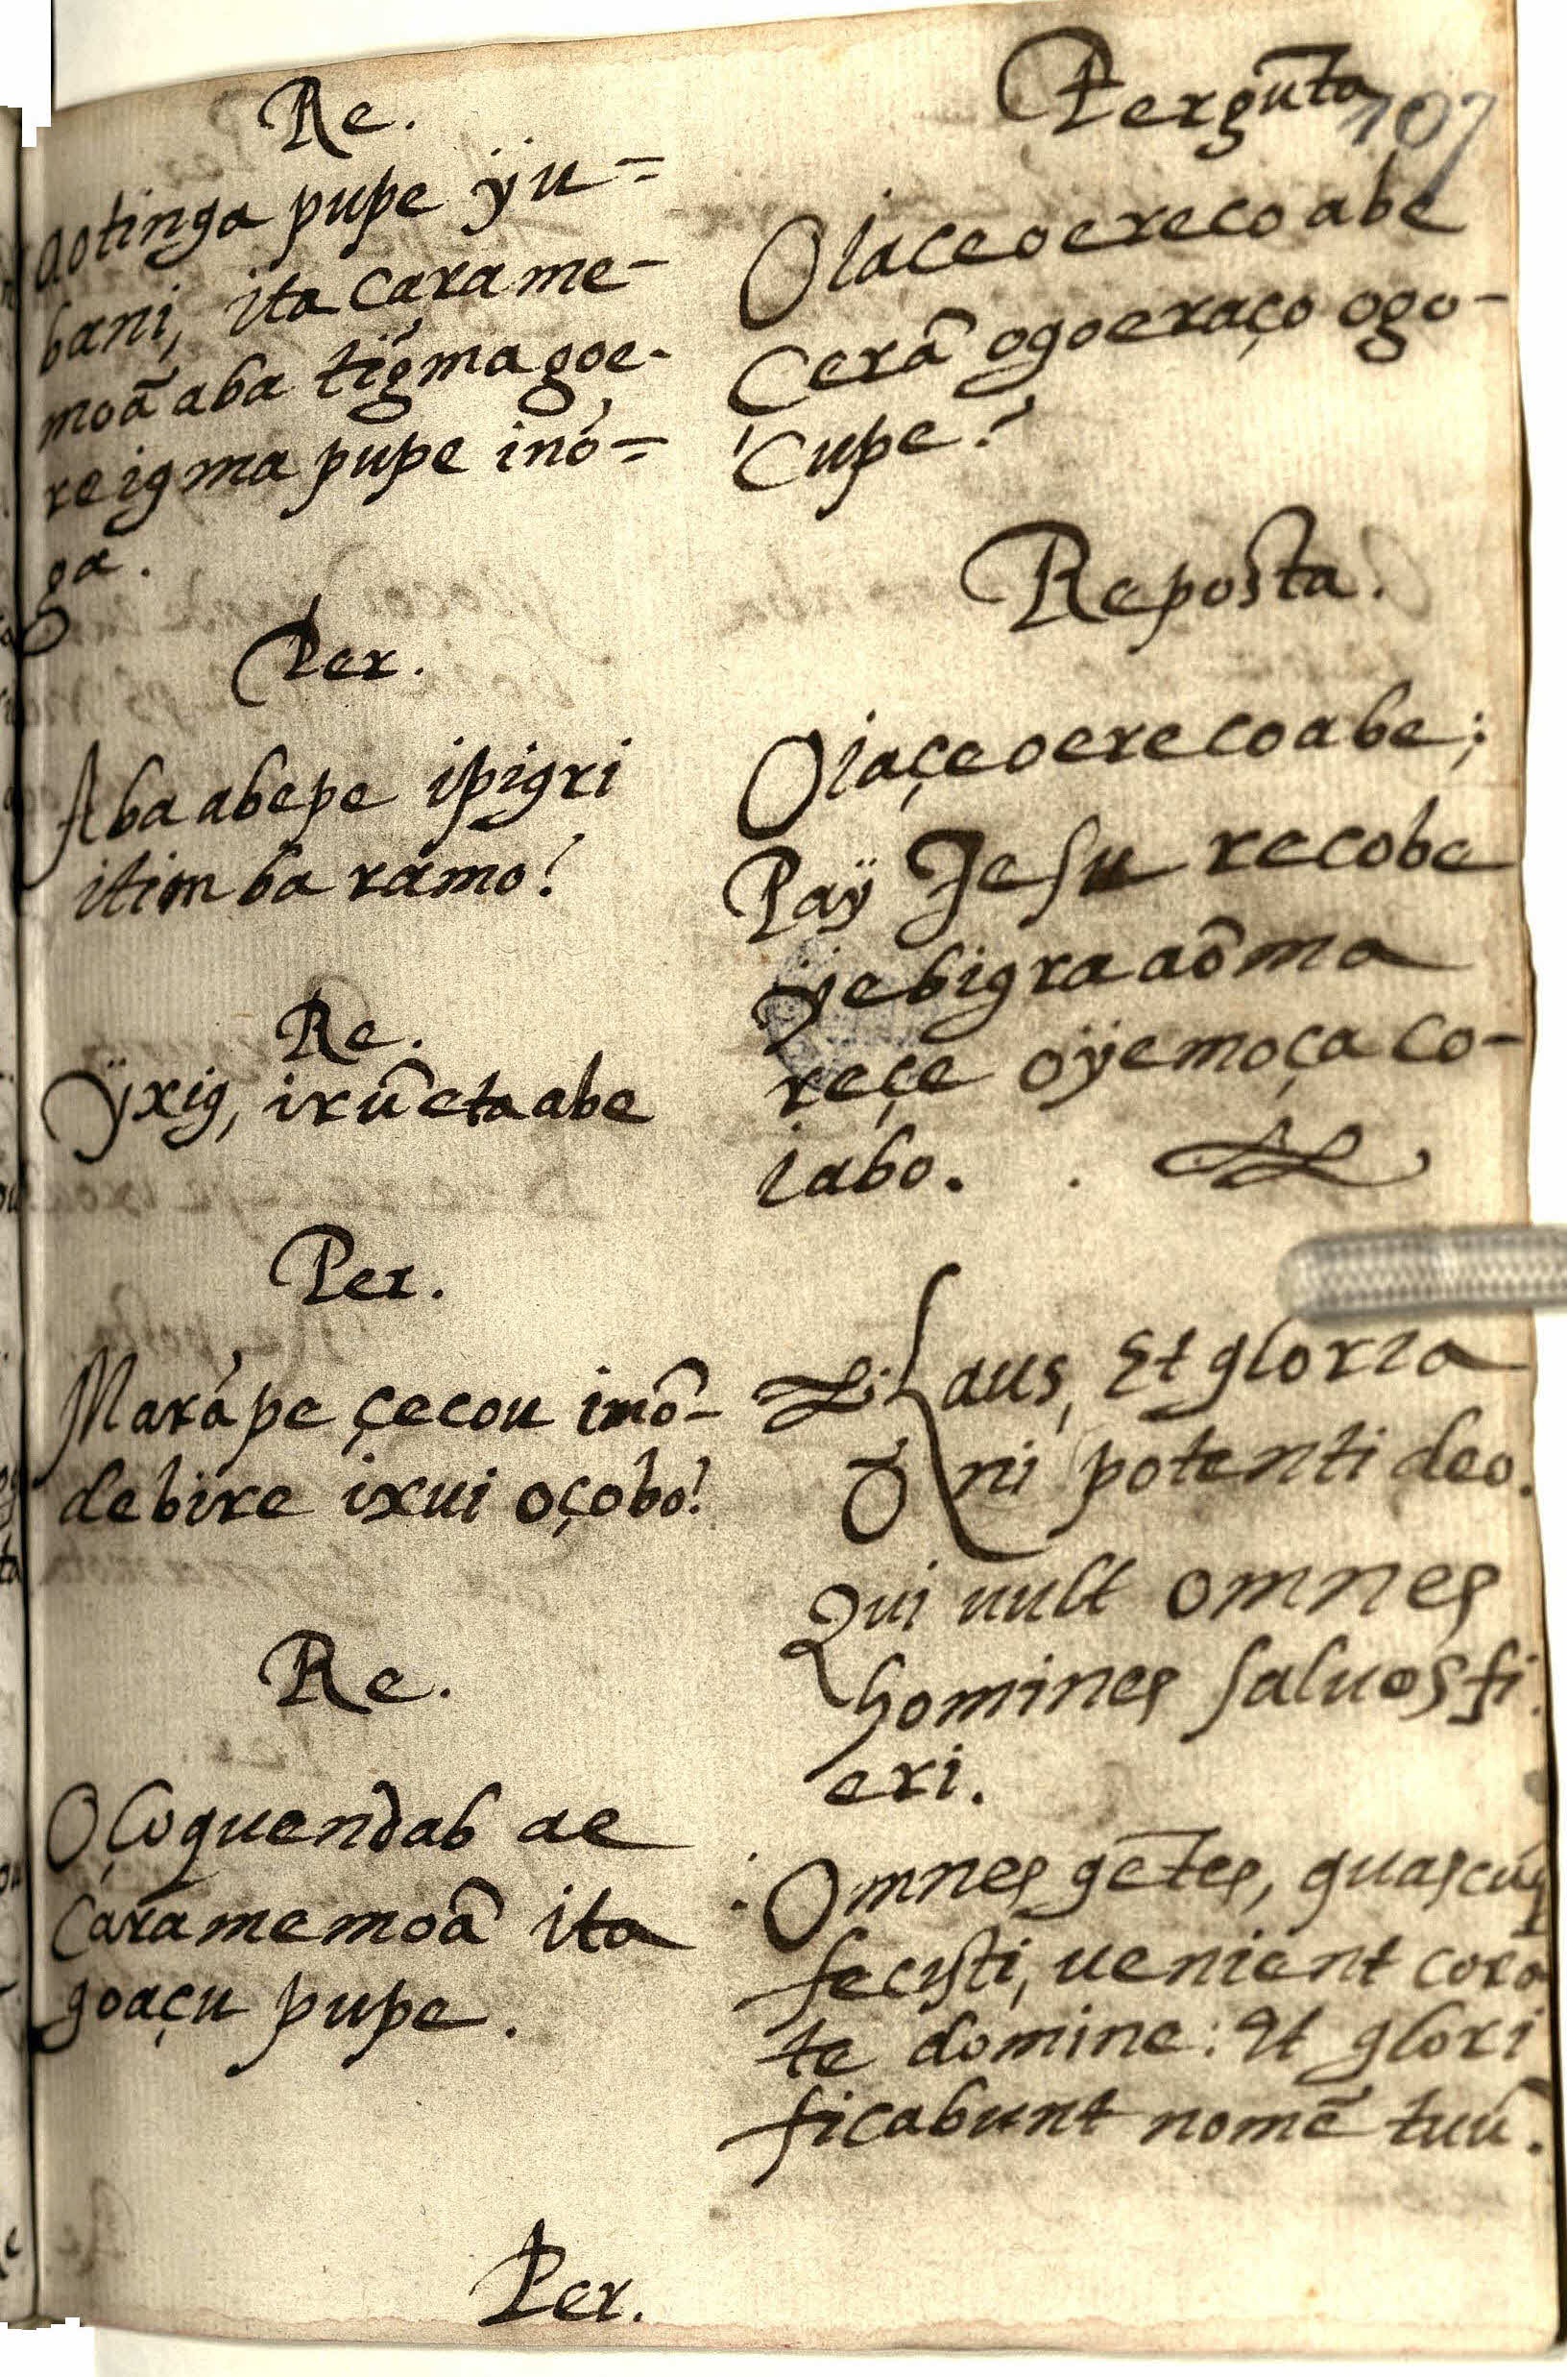 Re.
Aotinga pupe ÿu=
bani, ita carame-
moã aba tïgma goe-
reigma pupe inó=
ga.
Per.
Aba abepe ipigri
itimbaramo?
Re.
ÿxig, irũeta abe
Per.
Marápe çecou imõ-
debire ixui oçobo?
Re.
Oçoquendab ae
Caramemoã ita
goaçu pupe.
Per.
Pergũta
107
Oiaceoereco abe
Cerã ogoeraço ogo-
Cupe?
Reposta.
Oiaçeoerecoabe;
Paÿ Jesu recobe
ÿebigra aõma
reçe oÿemoçaco-
iabo.
Laus, Et gloria
Oni potenti deo.
Qui uult omnes
homines saluos fi
eri.
Omnes gẽtes, quascũq
fecisti, uenient corã
te domine: Et glori
ficabunt nomẽ tuũ.